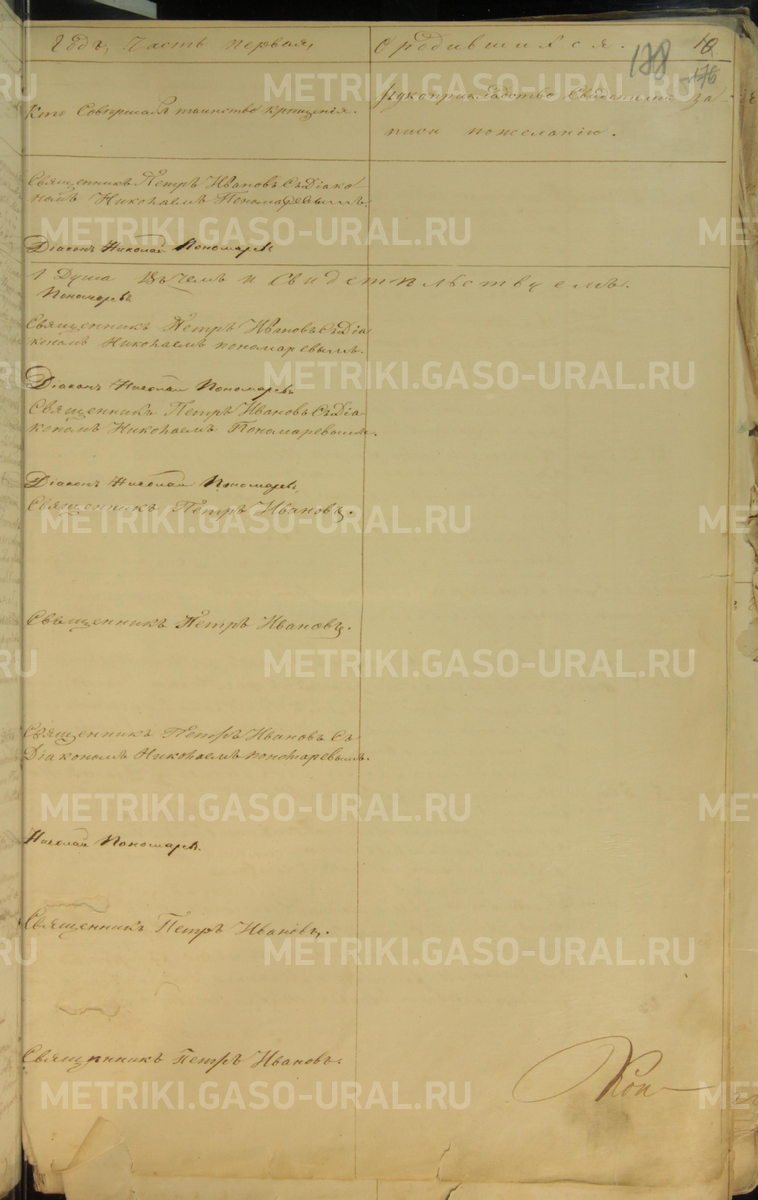 Годъ, Часть первая, О родившихся. 18
188
176
Кто Совершалъ таинство крещенія. Рукоприкладство Свидетелей за-
писи пожеланію.
Священникъ Петръ Ивановъ Съ Діако-
номъ Николаемъ Пономаревымъ.
Діаконъ Николай Пономаревъ
1 Душа Въ чемъ и Свидетельствуемъ.
Пономаревъ
Священникъ Петръ Ивановъ Съ Діа
кономъ Николаемъ пономаревымъ.
Діаконъ Николай Пономаревъ
Священникъ Петръ Ивановъ Съ Діа-
кономъ Николаемъ Пономаревымъ.
Діаконъ Николай Пономаревъ
Священникъ Петръ Ивановъ.
Священникъ Петръ Ивановъ.
Священникъ Петръ Ивановъ Съ
Діакономъ Николаемъ пономаревымъ.
Николай Пономаревъ
Священникъ Петръ Ивановъ.
Священникъ Петръ Ивановъ.
METRIKI.GASO-URAL.RU